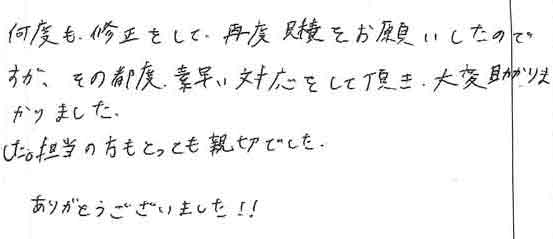 何度も、修正をして、再度見積をお願いしたので
すが、その都度、素早い対応をして頂き、大変助かりま
かりました。
した。担当の方もとっても親切でした。
ありがとうございました!!